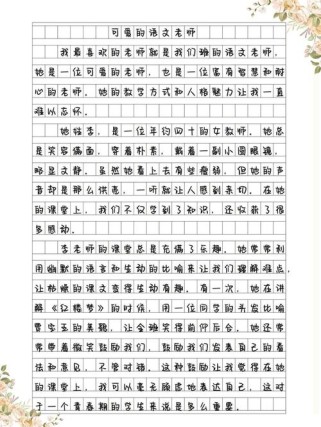 可爱的语文老师
我最喜欢的老师就是我们班的语文老师，
她是一位可爱的老师，也是一位富有智慧和耐
心的老师。她的教学方式和人格魅力让我一直
难以忘怀。
她姓李，是一位年约四十的女教师。她总
是笑容满面，穿着朴素，戴着一副小圆眼镜，
略显文静。虽然她看上去有些瘦弱，但她的声
音却是那么洪亮，一听就让人感到亲切。在她
的课堂上，我们不仅学到了知识，还收获了很
多感动。
李老师的课堂总是充满了乐趣。她常常利
用幽默的语言和生动的比喻来让我们理解难点，
让枯燥的课文变得生动有趣。有一次，她在讲
解《红楼梦》的时候，用一位同学的头发比喻
贾宝玉的美貌，让全班笑得前仰后合。她还常
常带着微笑鼓励我们，鼓励我们发表自己的看
法和意见，不管对错。这种鼓励让我觉得在她
的课堂上，我可以毫无顾虑地表达自己，这对
于一个青春期的学生来说是多么重要。